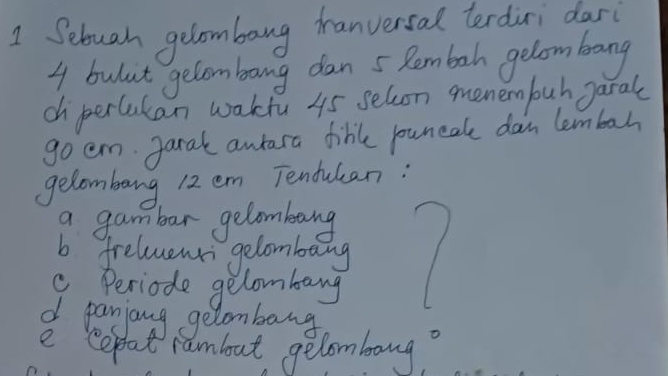 1 Sebuah gelombang tranversal terdiri dari
4 bukit gelombang dan 5 lembah gelombang
di perlukan waktu 45 sekon menempuh jarak
90 cm. Jarak antara titik puncak dan lembah
gelombang 12 cm Tentukan :
a gambar gelombang
b frekuensi gelombang
c Periode gelombang
d panjang gelombang
e Cepat rambat gelombang
?